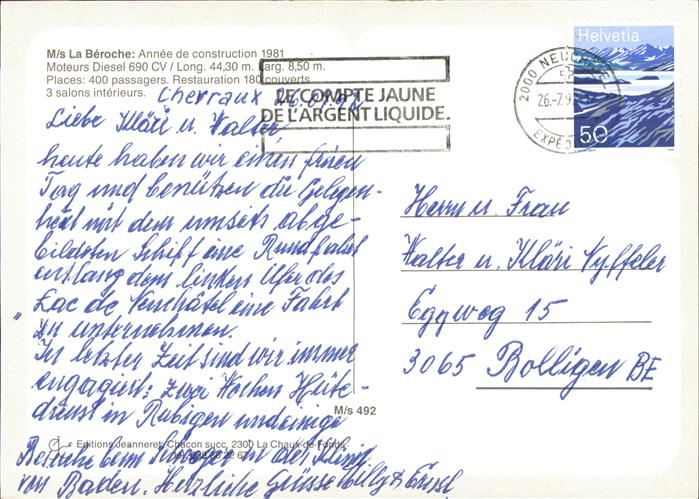 M/s La Béroche: Année de construction 1981
Moteurs Diesel 690 CV / Long. 44,30 m. Larg. 8,50 m.
Places: 400 passagers. Restauration 180 couverts
3 salons intérieurs.
LE COMPTE JAUNE
DE L'ARGENT LIQUIDE.
2000 NEUCHÂTEL
26.-7.9
EXPÉD
Helvetia
50
26.07.92
Liebe Kläri u. Walter,
heute haben wir einen freien
Tag und benützen die Gelegen-
heit mit dem umseits abge-
bildeten Schiff eine Rundfahrt
entlang dem linken Ufer des
Lac de Neuchâtel eine Fahrt
zu unternehmen.
In letzter Zeit sind wir immer
engagiert: zwei Wochen Hüte-
dienst in Rubigen und einige
Besuche beim in der Klinik
von Baden. Herzliche Grüsse Willy &
Herrn u. Frau
Walter u. Kläri Nyffeler
Eggweg 15
3065 Bolligen BE
M/s 492
Editions Jeanneret, Chacon succ, 2300 La Chaux-de-Fonds